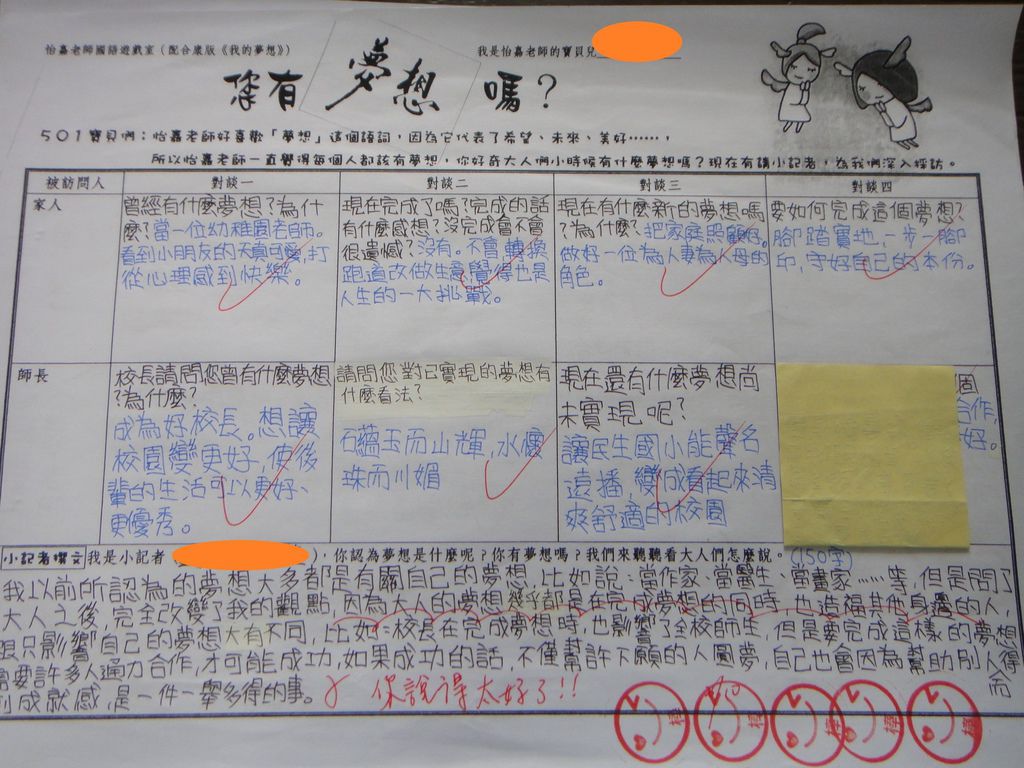 怡嘉老師國語遊戲室(配合康版《我的夢想》)
我是怡嘉老師的寶貝兒
您有夢想嗎?
501寶貝們:怡嘉老師好喜歡「夢想」這個語詞,因為它代表了希望、未來、美好……,
所以怡嘉老師一直覺得每個人都該有夢想,你好奇大人們小時候有什麼夢想嗎?現在有請小記者,為我們深入採訪。
被訪問人 對談一 對談二 對談三 對談四
家人
曾經有什麼夢想?為什
麼?當一位幼稚園老師。
看到小朋友的天真可愛,打
從心理感到快樂。
現在完成了嗎?完成的話
有什麼感想?沒完成會不會
很遺憾?沒有。不會,轉換
跑道改做生意覺得也是
人生的一大挑戰。
現在有什麼新的夢想嗎
?為什麼?把家庭照顧好。
做好一位為人妻為人母的
角色。
要如何完成這個夢想?
腳踏實地,一步一腳
印,守好自己的本份。
師長
校長請問您曾有什麼夢想
?為什麼?
成為好校長。想讓
校園變更好,使後
輩的生活可以更好、
更優秀。
請問您對已實現的夢想有
什麼看法?
石蘊玉而山輝,水懷
珠而川媚
現在還有什麼夢想尚
未實現呢?
讓民生國小能聲名
遠播,變成看起來清
爽舒適的校園
個
合作,
好。
小記者撰文 我是小記者 ),你認為夢想是什麼呢?你有夢想嗎?我們來聽聽看大人們怎麼說。(150字)
我以前所認為的夢想大多都是有關自己的夢想,比如說:當作家、當醫生、當畫家……等,但是問了
大人之後,完全改變了我的觀點,因為大人的夢想幾乎都是在完成夢想的同時,也造福其他身邊的人,
跟只影響自己的夢想大有不同,比如:校長在完成夢想時,也影響了全校師生,但是要完成這樣的夢想
需要許多人通力合作,才可能成功,如果成功的話,不僅幫許下願的人圓夢,自己也會因為幫助別人得
到成就感,是一件一舉多得的事。
而
你說得太好了!!
棒 棒 棒 棒 棒